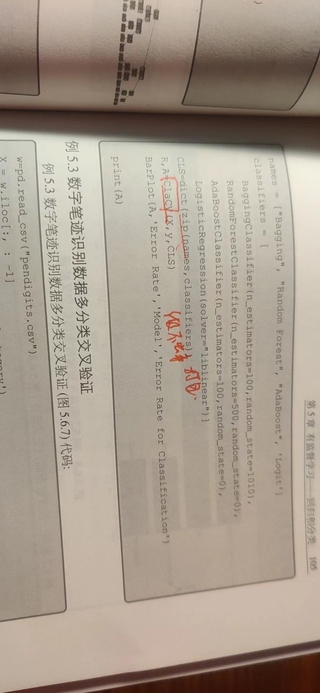 第 5 章  有监督学习——回归和分类  105
names = ["Bagging", "Random Forest", "AdaBoost", 'Logit']
classifiers = [
BaggingClassifier(n_estimators=100,random_state=1010),
RandomForestClassifier(n_estimators=500,random_state=0),
AdaBoostClassifier(n_estimators=100,random_state=0),
LogisticRegression(solver="liblinear")]
CLS=dict(zip(names,classifiers))
R,A=ClaCV(X,y,CLS)
BarPlot(A,'Error Rate','Model','Error Rate for Classification')
print(A)
例 5.3 数字笔迹识别数据多分类交叉验证
例 5.3 数字笔迹识别数据多分类交叉验证 (图 5.6.7) 代码:
w=pd.read_csv("pendigits.csv")
X = w.iloc[:, : -1]